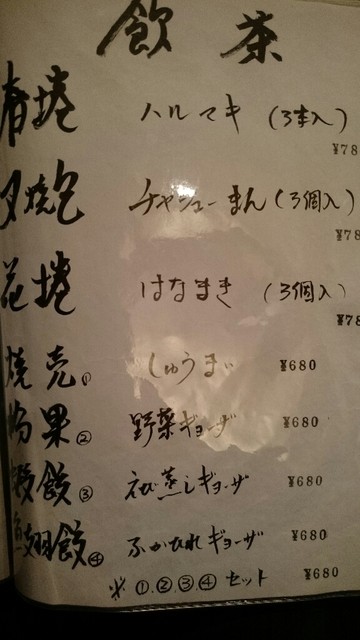 飲茶
春捲 ハルマキ (3本入) ¥78
叉焼包 チャシューまん (3個入) ¥78
花捲 はなまき (3個入) ¥78
焼売① しゅうまい ¥680
粉果② 野菜ギョーザ ¥680
餃③ えび蒸しギョーザ ¥680
魚翅餃④ ふかひれギョーザ ¥680
※①.②.③.④ セット ¥680